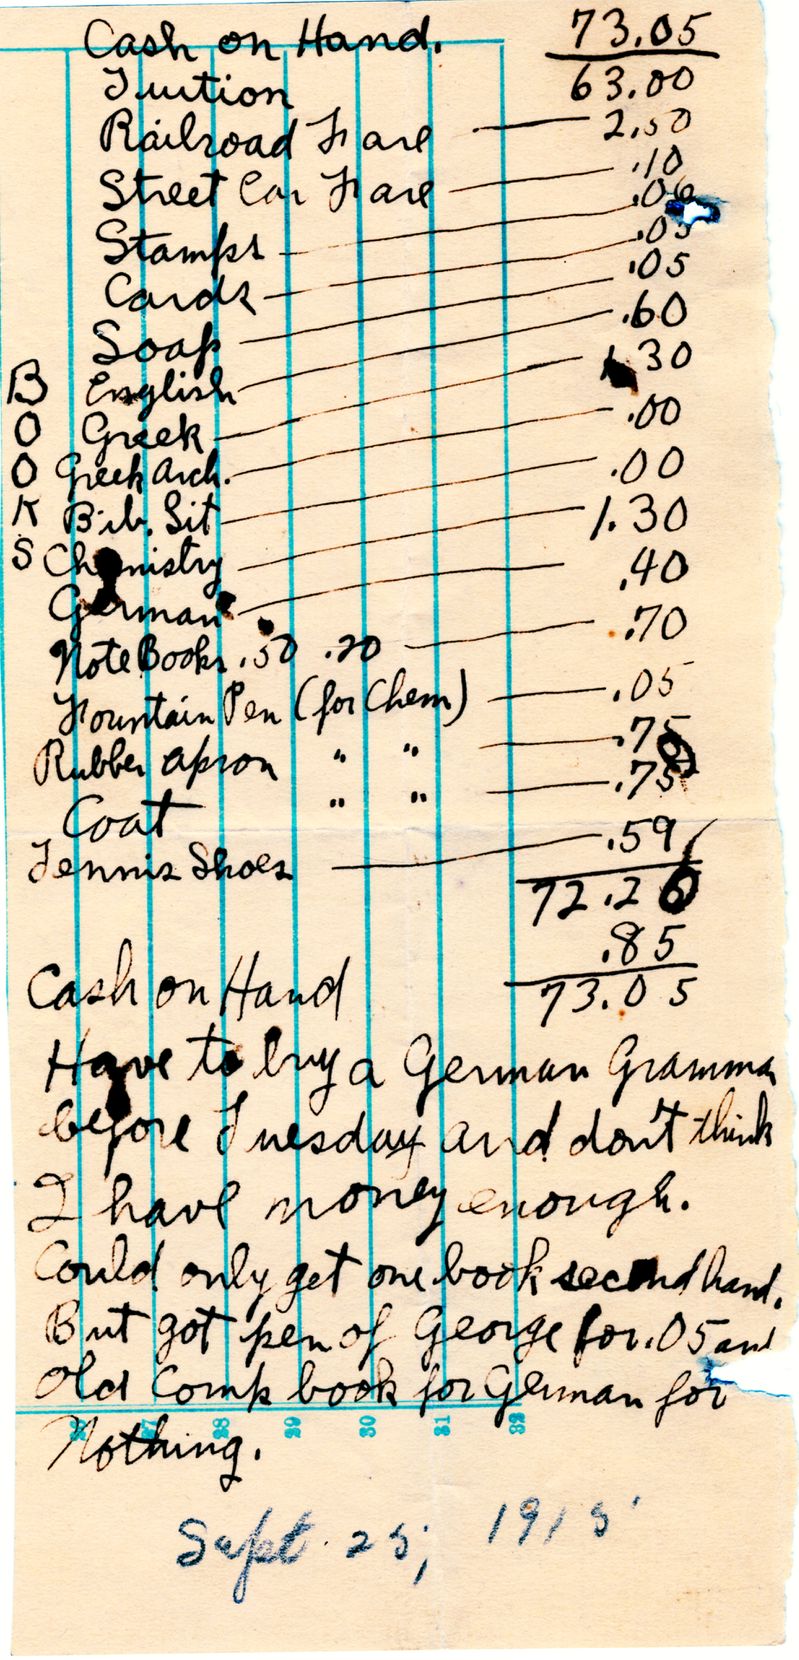 Cash on Hand. 73.05
Tuition 63.00
Railroad Fare — 2.50
Street Car Fare — .10
Stamps — .06
Cards — .05
Soap — .05
B English — .60
O Greek — 1.30
O Greek Arch. — .00
K Bib. Lit — .00
S Chemistry — 1.30
German — .40
Note Books .50 .20 — .70
Fountain Pen (for Chem) — .05
Rubber apron " " — .75
Coat " " — .75
Tennis Shoes — .59
72.20
.85
Cash on Hand 73.05
Have to buy a German Gramma
before Tuesday and don't think
I have money enough.
Could only get one book second hand.
But got pen of George for .05 and
Old Comp book for German for
Nothing.
26 27 28 29 30 31 32
Sept. 25, 1915